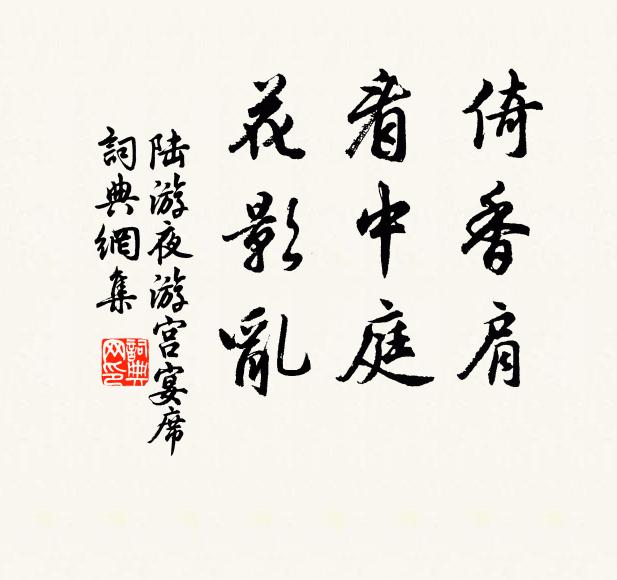 倚香肩
看中庭
花影亂
陆游夜游宫宴席
詞典網集
詞典网印